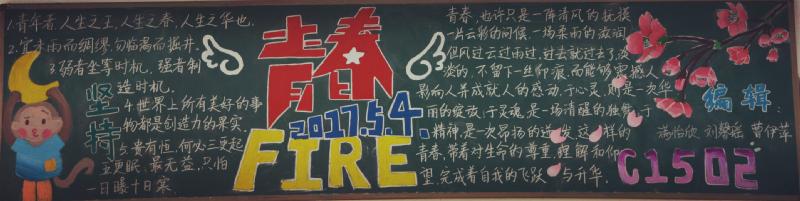 1.青年者,人生之王,人生之春,人生之华也.
2.宜未雨而绸缪,勿临渴而掘井.
3.弱者坐等时机,强者制
造时机.
4.世界上所有美好的事
物都是创造力的果实.
5.贵有恒,何必三更起
五更眠,最无益,只怕
一日曝十日寒
坚持
青春
2017.5.4.
FIRE
青春,也许只是一阵清风的抚摸
一片云彩的问候,一场柔雨的滋润
但风过云过雨过,过去就过去了,淡
淡的,不留下一丝印痕,而能够震撼人
影响人并成就人的感动,于心灵,则是一次华
丽的绽放,于灵魂,是一场清醒的独舞,于
精神,是一次昂扬的迸发,这样的
青春,带着对生命的尊重,理解和仰
望,完成着自我的飞跃与升华.
编辑:
怡欣 刘馨瑶 曹伊萍
C1502